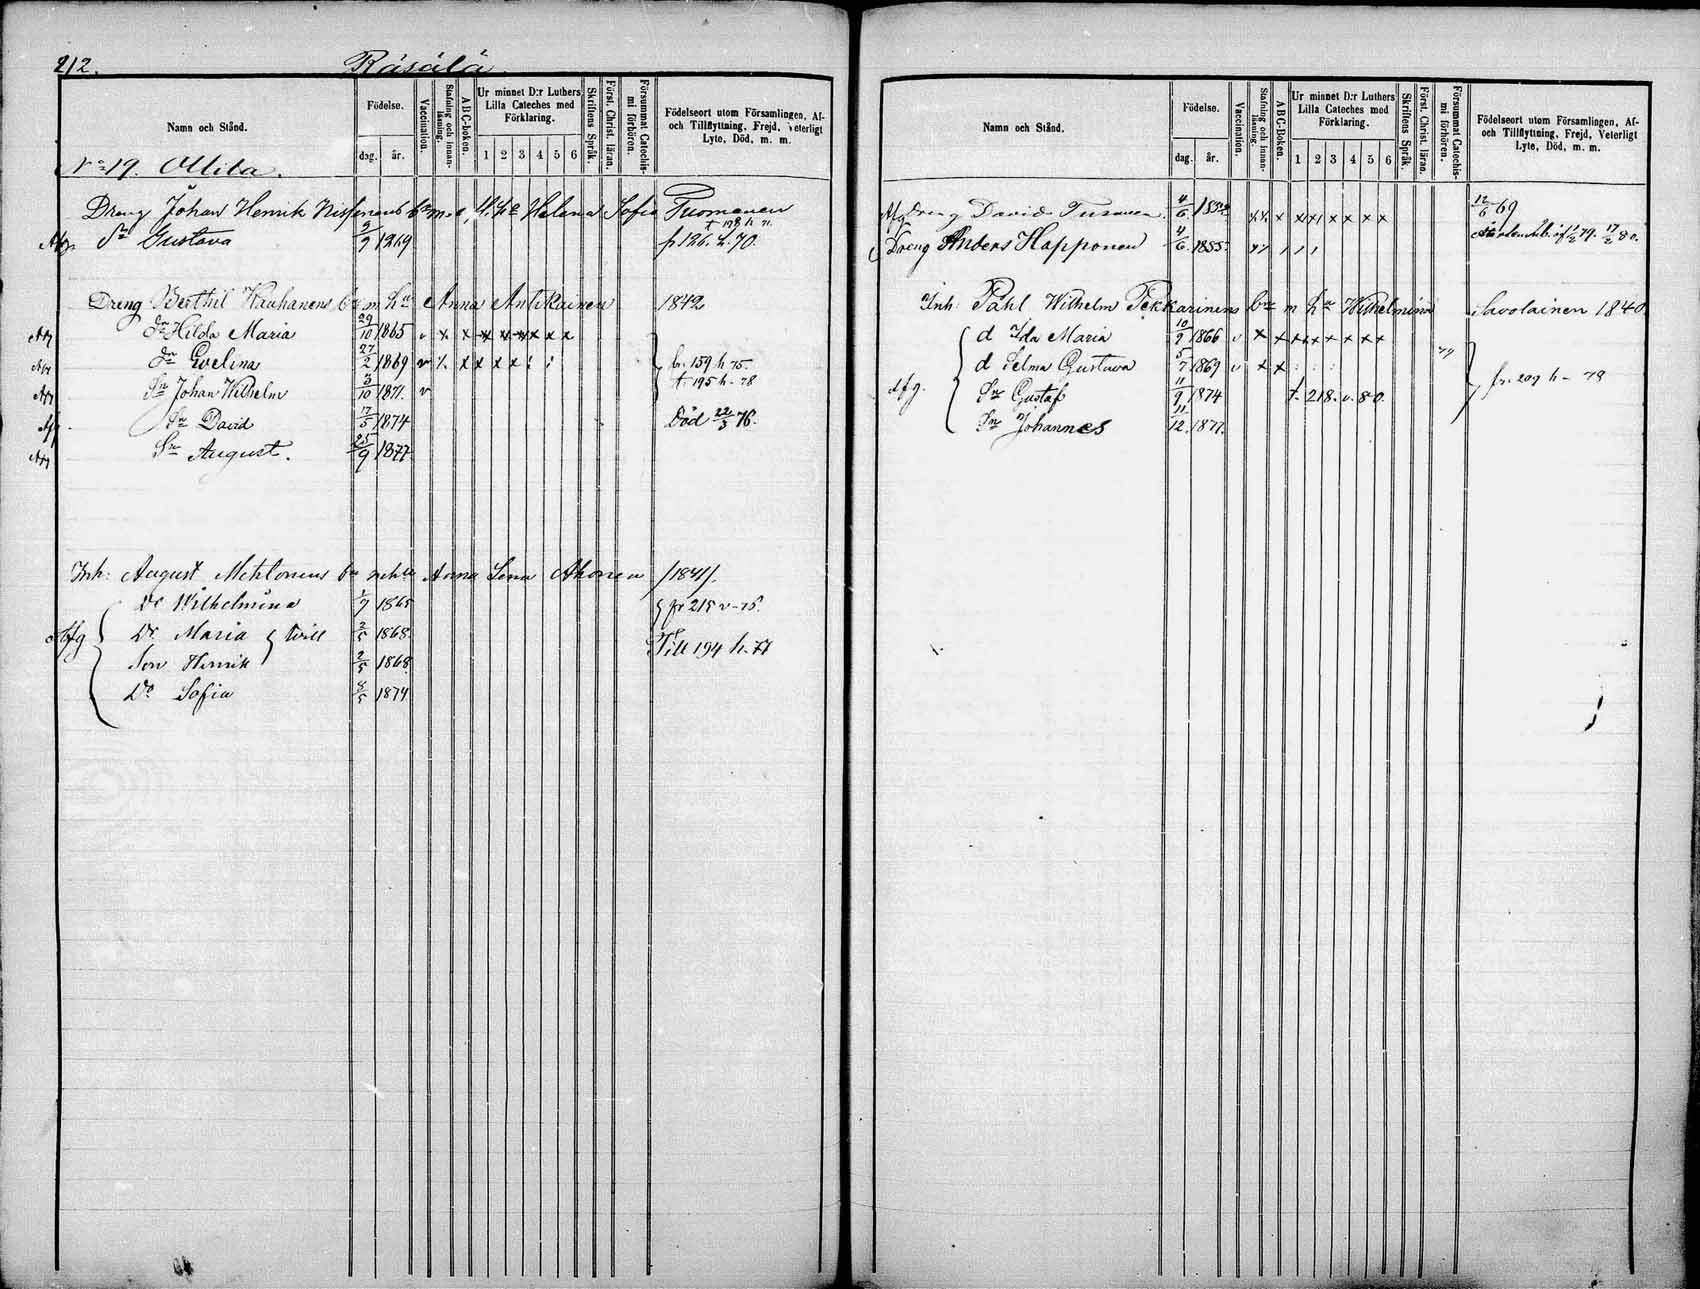 212.
Räsälä
Namn och Stånd.
Födelse.
dag.
år.
Vaccination.
Stafning och innanläsning.
ABC-boken.
Ur minnet D:r Luthers Lilla Cateches med Förklaring.
1 2 3 4 5 6
Skriftens Språk.
Först. Christ. läran.
Försummat Catechismi förhören.
Födelseort utom Församlingen, Af- och Tillflyttning, Frejd, Veterligt Lyte, Död, m. m.
No 19. Ollila.
Dreng Johan Henrik Nissinens Helena Sofia Tuomonen
Gustava 9/9 1869 p 126. h. 70.
Dreng Berthil Hauhanens bn m hu Anna Antikainen 1842
Hilda Maria 29/10 1865 v x x x x x x x x
Evelina 27/2 1869 v x x x x x fr. 159 h 75.
Sn Johan Wilhelm 3/10 1871. v t. 195 h - 78
Sn David 17/5 1874 Död 22/3 76.
Sn August. 25/9 1877
Inh: August Mehtonens bn m hu Anna Lena Ahonen /1841/.
Dr Wilhelmina 1/7 1865 fr 215 v - 75.
Afg Dr Maria } tvill 2/5 1868.
Till 194 h. 77
Son Henrik 2/5 1868.
Dr Sofia 8/5 1874
Namn och Stånd.
Födelse.
dag.
år.
Vaccination.
Stafning och innanläsning.
ABC-Boken.
Ur minnet D:r Luthers Lilla Cateches med Förklaring.
1 2 3 4 5 6
Skriftens Språk.
Först. Christ. läran.
Försummat Catechismi förhören.
Födelseort utom Församlingen, Af- och Tillflyttning, Frejd, Veterligt Lyte, Död, m. m.
Afg Dreng David 4/6 1852 x x x x x x x 12/6 69
Dreng Anders Happonen 4/6 1855. 79. 17/2 80.
Inh: Påhl Wilhelm Pekkarinens bn m hu Wilhelmina Savolainen 1840
d Ida Maria 10/9 1866 v x x x x x x x x
79
d Selma Gustava 5/7 1869 v x x
fr. 209 h - 79
Afg. Sn Gustaf 11/9 1874 t. 218. v. 80.
Sn Johannes 11/12. 1877.